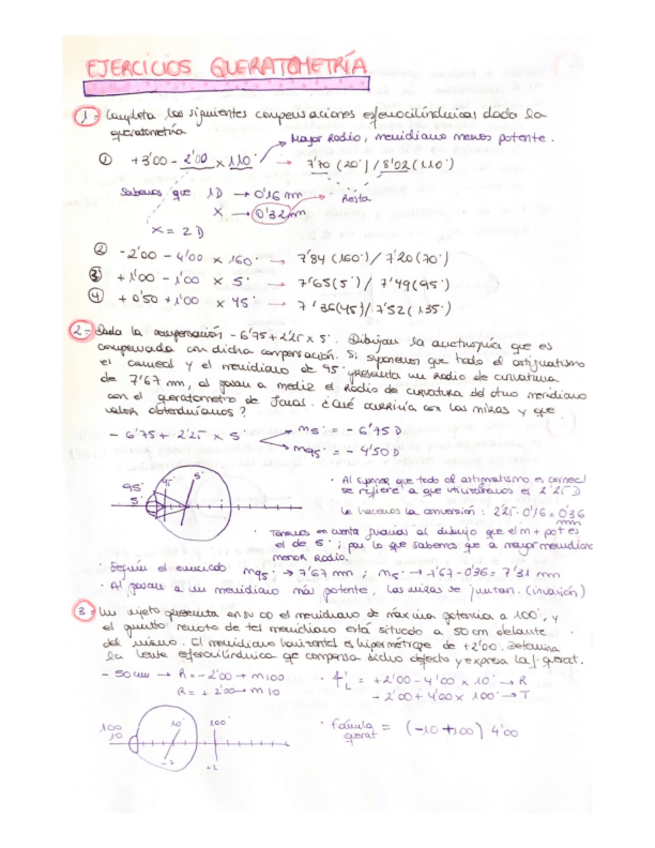 EJERCICIOS QUERATOMETRÍA
1- Completa las siguientes compensaciones esferocilíndricas dada la
queratometría
Mayor Radio, meridiano menos potente.
① +3'00 - 2'00 x 110° → 7'70 (20°) / 8'02 (110°)
Sabemos que 1D → 0'16 mm
Resta
X → 0'32mm
X = 2 D
② -2'00 - 4'00 x 160° → 7'84 (160°) / 7'20 (70°)
③ +1'00 - 1'00 x 5° → 7'65 (5°) / 7'49 (95°)
④ +0'50 +1'00 x 45° → 7'36 (45) / 7'52 (135°)
2- Dada la compensación - 6'75 + 2'25 x 5°. Dibujar la ametropía que es
compensada con dicha compensación. Si suponemos que todo el astigmatismo
es corneal y el meridiano de 95° presenta un radio de curvatura
de 7'67 mm, al pasar a medir el radio de curvatura del otro meridiano
con el queratometro de Javal. ¿Qué ocurriría con las miras y que
valor obtendríamos?
- 6'75 + 2'25 x 5°
m5° = - 6'75 D
m95° = - 4'50 D
95°
5°
5°
· Al suponer que todo el astigmatismo es corneal
se refiere a que utilizaremos el 2'25 D
Le hacemos la conversión: 2'25 · 0'16 = 0'36
mm
· Tenemos en cuenta gracias al dibujo que el m + pot es
el de 5°; por lo que sabemos que a mayor meridiano
menor Radio.
· Según el enunciado m95° → 7'67 mm; m5° → 7'67 - 0'36 = 7'31 mm
· Al pasar a un meridiano más potente, las miras se juntan. (invasión)
3- Un sujeto presenta en su OD el meridiano de máxima potencia a 100°, y
el punto remoto de tal meridiano está situado a 50 cm delante
del mismo. El meridiano horizontal es hipermétrope de +2'00. Determina
la lente esferocilíndrica que compensa dicho defecto y expresa la f. querat.
- 50 cm → R = - 2'00 → m100
R = + 2'00 → m10
· fL = + 2'00 - 4'00 x 10° → R
- 2'00 + 4'00 x 100° → T
100
10
10°
100°
-2
+2
· Fórmula
querat = (-10 + 100) 4'00